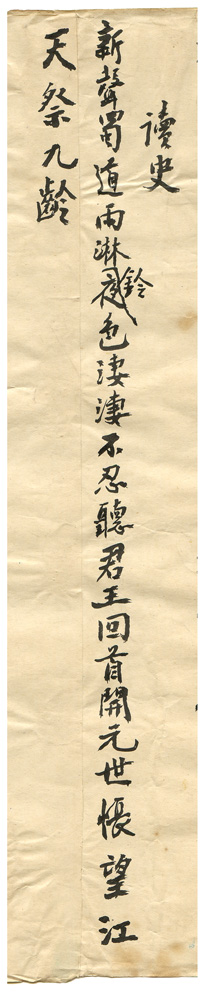 讀史
新聲蜀道雨淋鈴夜色淒淒不忍聽君王回首開元世悵望江
天祭九齡